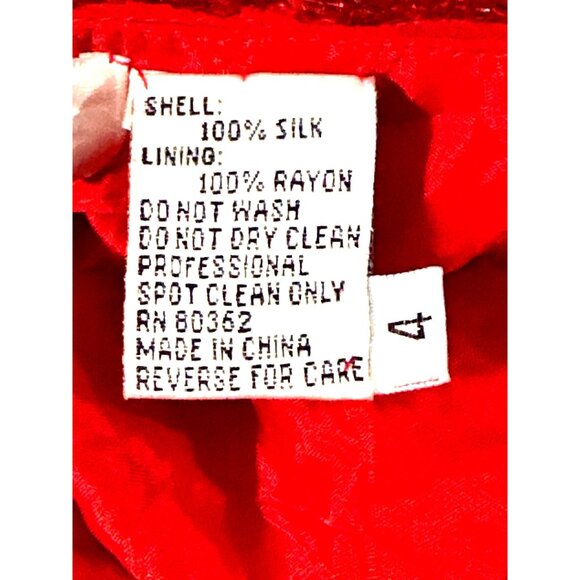 SHELL:
100% SILK
LINING:
100% RAYON
DO NOT WASH
DO NOT DRY CLEAN
PROFESSIONAL
SPOT CLEAN ONLY
RN 80362
MADE IN CHINA
REVERSE FOR CARE
4